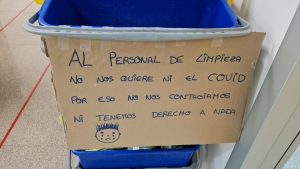 AL PERSONAL DE LIMPIEZA
NO NOS QUIERE NI EL COVID
POR ESO NO NOS CONTAGIAMOS
NI TENEMOS DERECHO A NADA